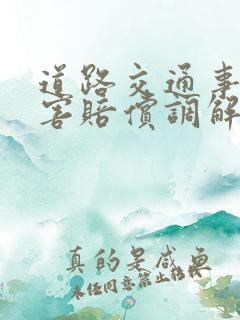 道路交通事
害賠償調解
真的是咸魚
未经同意禁止转载